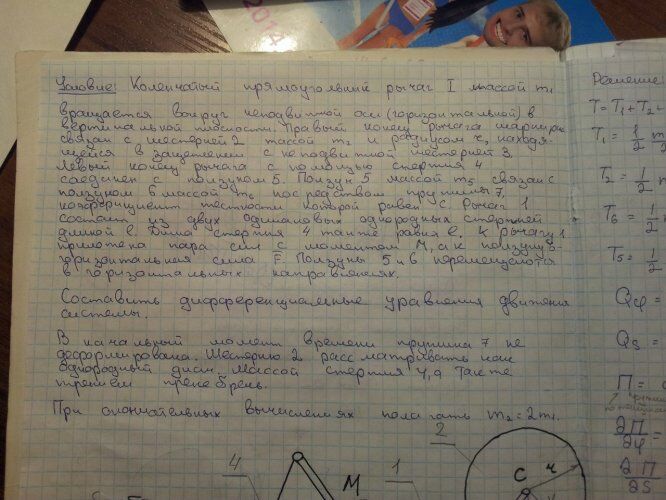 2014
Условие: Коленчатый прямоугольный рычаг I массой m₁
вращается вокруг неподвижной оси (горизонтальной) в
вертикальной плоскости. Правый конец рычага шарнирно
связан с шестерней 2 массой m₂ и радиусом r, находя-
щейся в зацеплении с неподвижной шестерней 3.
Левый конец рычага с помощью стержня 4
соединен с ползуном 5. Ползун 5 массой m₅ связан с
ползуном 6 массой m₆ посредством пружины 7,
коэффициент жесткости которой равен c. Рычаг 1
состоит из двух одинаковых однородных стержней
длиной l. Длина стержня 4 также равна l. К рычагу 1
приложена пара сил с моментом M, а к ползуну 6-
горизонтальная сила F. Ползуны 5 и 6 перемещаются
в горизонтальных направлениях.
Составить дифференциальные уравнения движения
системы.
В начальный момент времени пружина 7 не
деформирована. Шестерню 2 рассматривать как
однородный диск. Массой стержня 4, а также
трением пренебречь.
При окончательных вычислениях полагать m₂=2m₁
2
4
M
1
C
r
Решение
T=T₁+T₂+
T₁=1/2 m
T₂=1/2
T₆=1/2
T₅=1/2
Qφ=
Qs=
П=
∂П/∂φ=
∂П/∂S